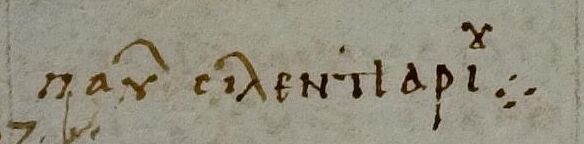 παυλ σιλεντιαριȣ ⁘